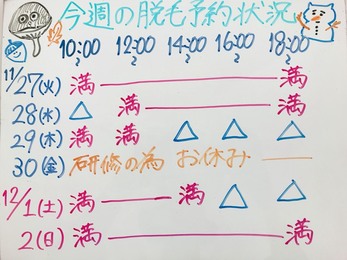 今週の脱毛予約状況
10:00 12:00 14:00 16:00 18:00
〜 〜 〜 〜
11/27(火) 満 ― 満
28(水) △ 満 ― 満
29(木) 満 満 △ △ △
30(金) 研修の為 お休み ―
12/1(土) 満 ― 満 △ △
2(日) 満 ― 満